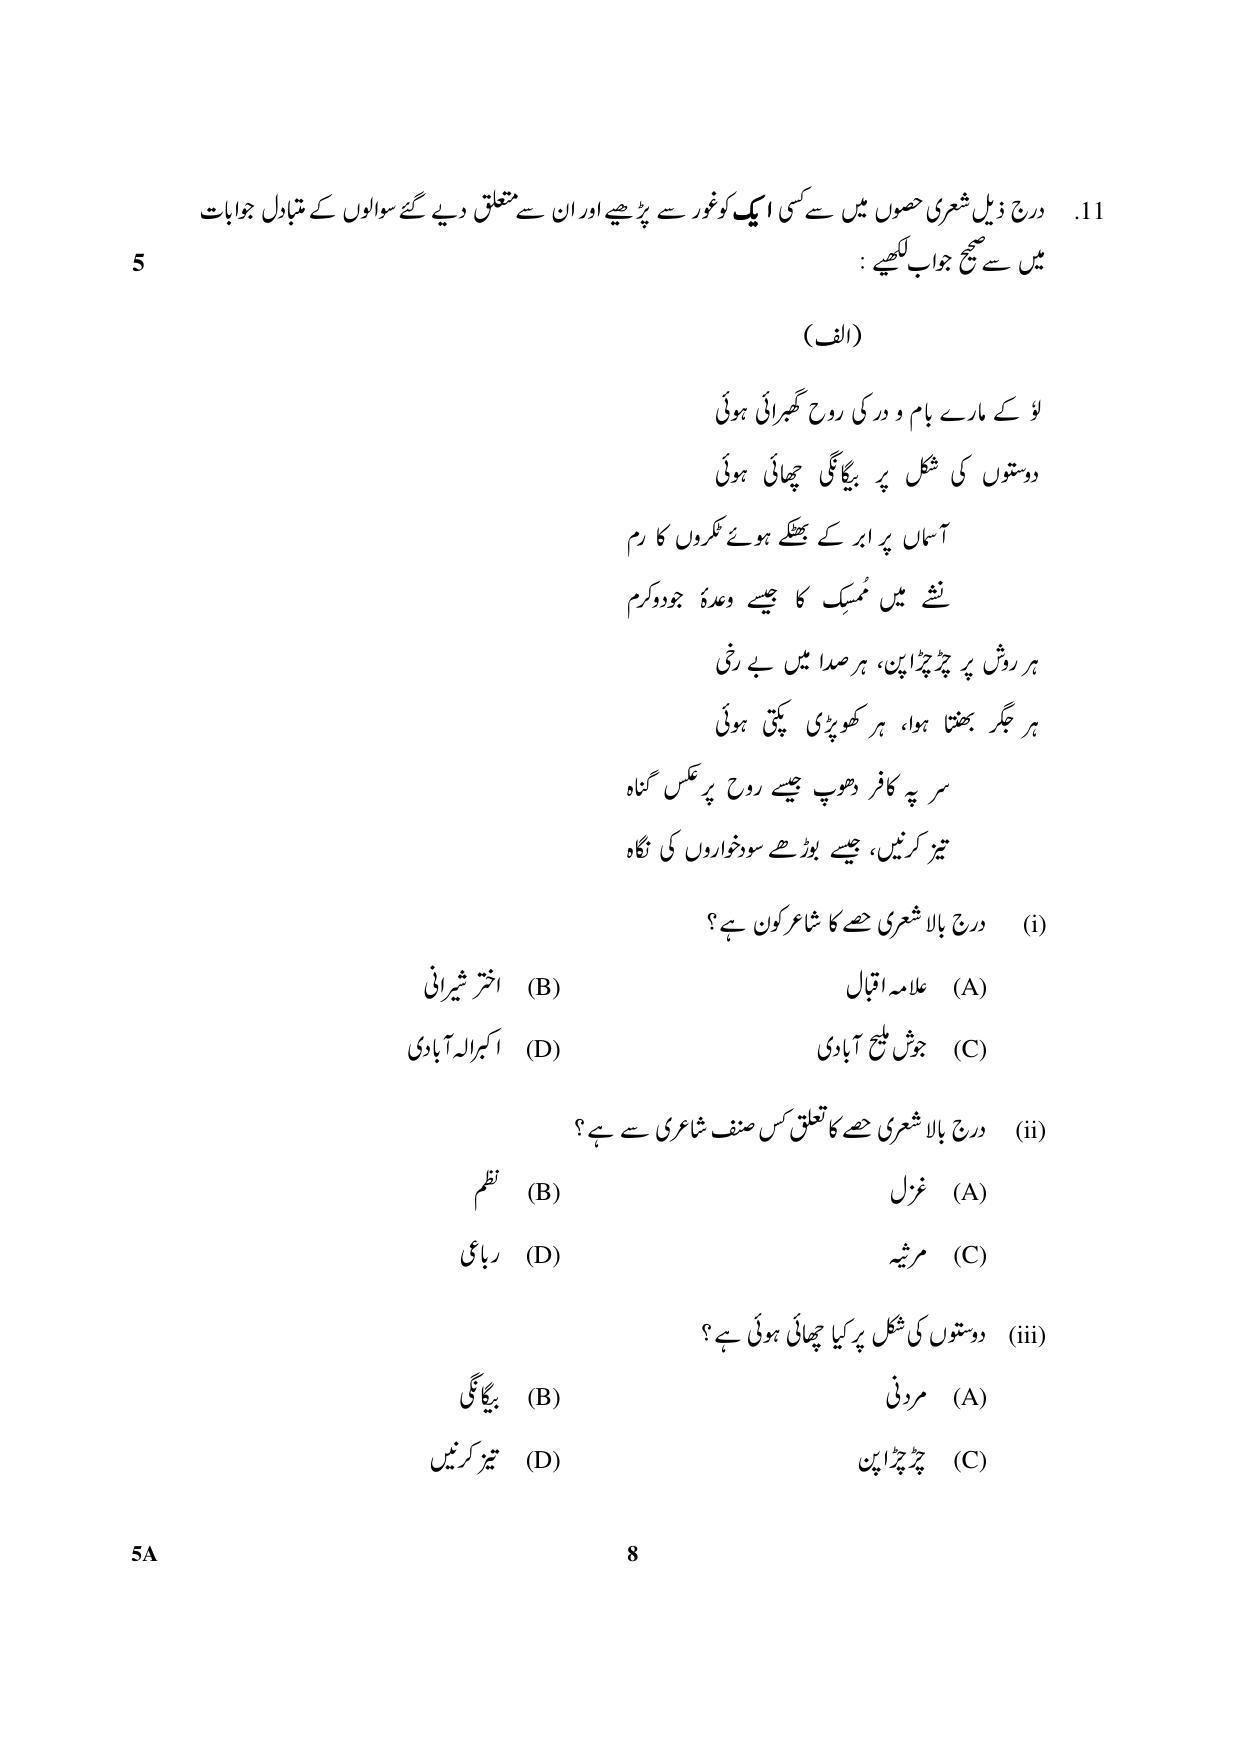 11. درج ذیل شعری حصوں میں سے کسی ایک کو غور سے پڑھیے اور ان سے متعلق دیے گئے سوالوں کے متبادل جوابات
میں سے صحیح جواب لکھیے : 5
(الف)
لوٗ کے مارے بام و در کی روح گھبرائی ہوئی
دوستوں کی شکل پر بیگانگی چھائی ہوئی
آسماں پر ابر کے بھٹکے ہوئے ٹکروں کا رم
نشے میں مُمسِک کا جیسے وعدۂ جودوکرم
ہر روش پر چڑچڑاپن، ہر صدا میں بے رخی
ہر جگر بھنتا ہوا، ہر کھوپڑی پکتی ہوئی
سر پہ کافر دھوپ جیسے روح پر عکس گناہ
تیز کرنیں، جیسے بوڑھے سودخواروں کی نگاہ
(i) درج بالا شعری حصے کا شاعر کون ہے؟
(A) علامہ اقبال (B) اختر شیرانی
(C) جوش ملیح آبادی (D) اکبر الہ آبادی
(ii) درج بالا شعری حصے کا تعلق کس صنف شاعری سے ہے؟
(A) غزل (B) نظم
(C) مرثیہ (D) رباعی
(iii) دوستوں کی شکل پر کیا چھائی ہوئی ہے؟
(A) مردنی (B) بیگانگی
(C) چڑچڑاپن (D) تیز کرنیں
5A 8